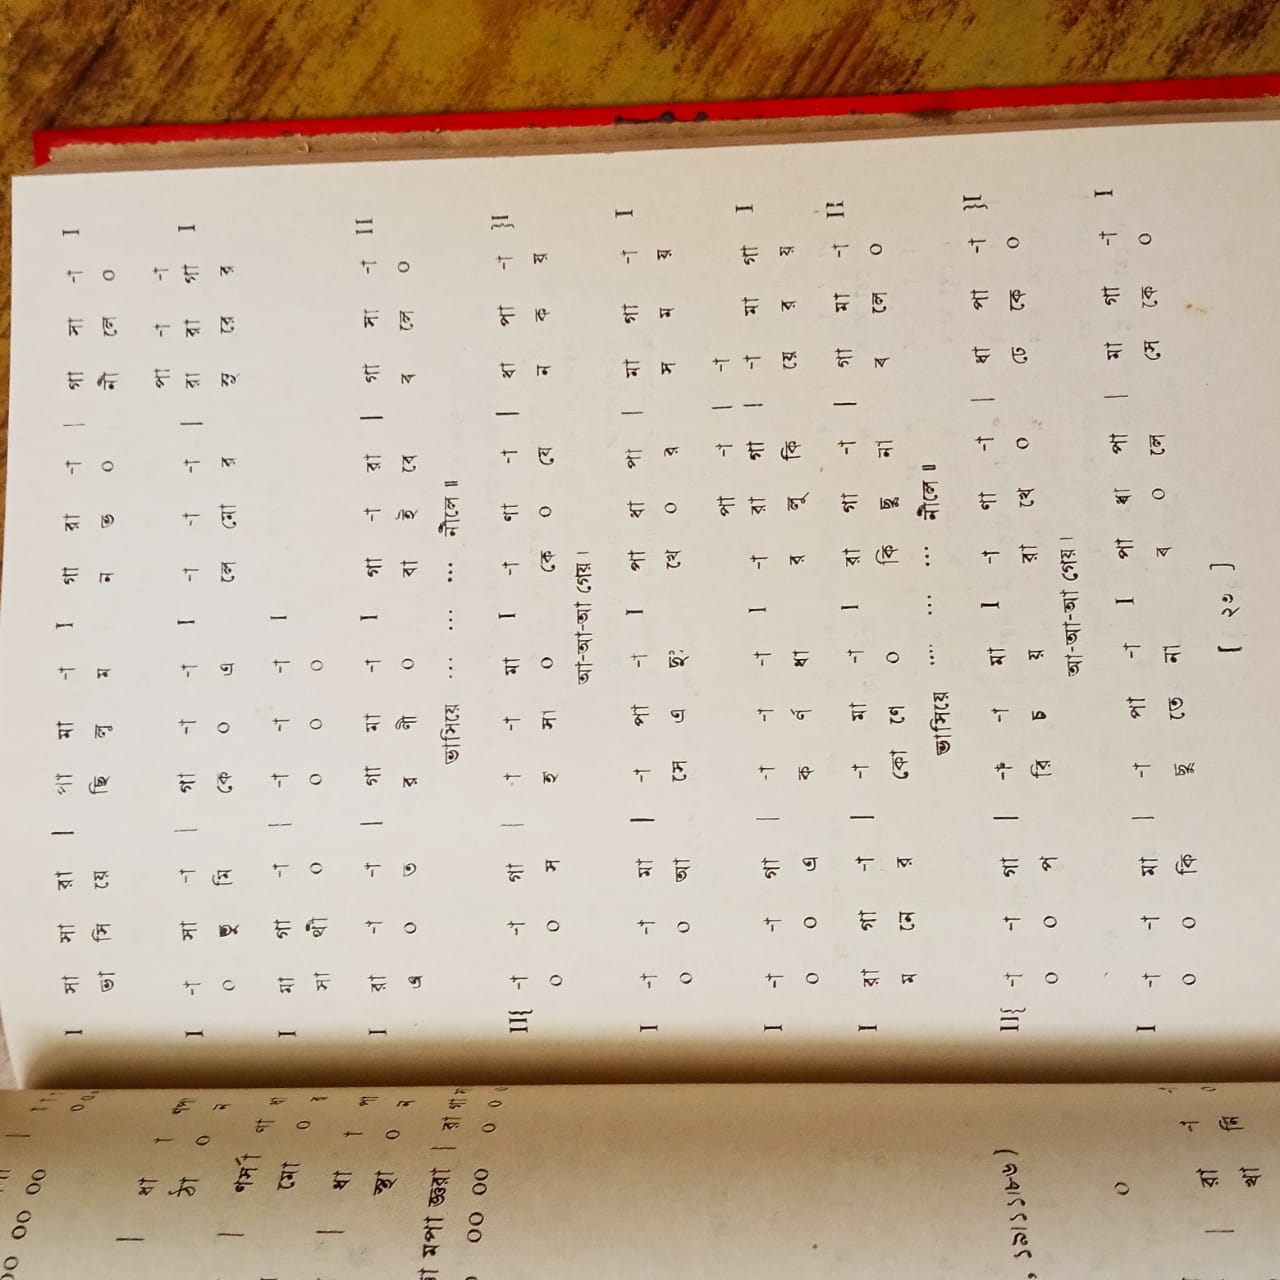 I সা সা রা | পা মা -া I গা রা -া | গা সা -া I
ভা সি য়ে ছি লু ম ন ভ ০ নী লে ০
পা -া -া
I -া সা -া | গা -া -া I -া -া -া | রা রা গা I
০ তু মি কে ০ এ লে মো র সু রে র
I মা গা -া | -া -া -া I
সা থী ০ ০ ০ ০
I রা -া -া | গা মা -া I গা -া রা | গা সা -া II
এ ০ ত র ণী ০ বা ই বে ব লে ০
ভাসিয়ে ... ... ... নীলে॥
II{ -া -া গা | -া -া মা I -া ণা -া | ধা পা -া }I
০ ০ স হ সা ০ কে ০ যে ন ক র
আ-আ-আ গেয়।
I -া -া মা | -া পা -া I পা ধা পা | মা গা -া I
০ ০ আ সে এ থে ০ র স ম য়
পা -া | -া
I -া -া গা | -া -া -া I -া রা গা | -া মা গা I
০ ০ এ ক র্ণ ধা র লূ কি য়ে র য়
I রা গা -া | -া মা -া I রা গা -া | গা মা -া I}
ম নে র কো ণে ০ কি ছু না ব লে ০
ভাসিয়ে .... ... ... নীলে॥
II{ -া -া গা | -া -া মা I -া ণা -া | ধা পা -া }I
০ ০ প রি চ য় রা খে ০ ঢে কে ০
আ-আ-আ গেয়।
I -া -া মা | -া পা -া I পা ধা পা | মা গা -া I
০ ০ কি ছু তে না ব ০ লে সে কে ০
[ ২৩ ]